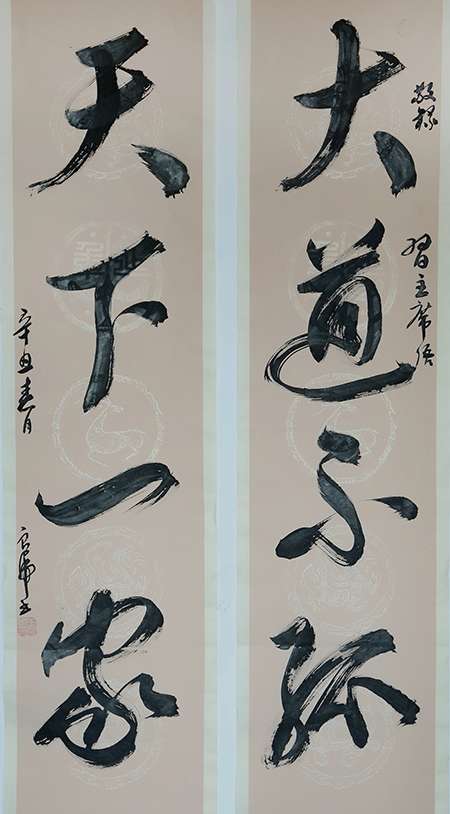 敬録
習主席语
大道不孤
天下一家
辛丑春月